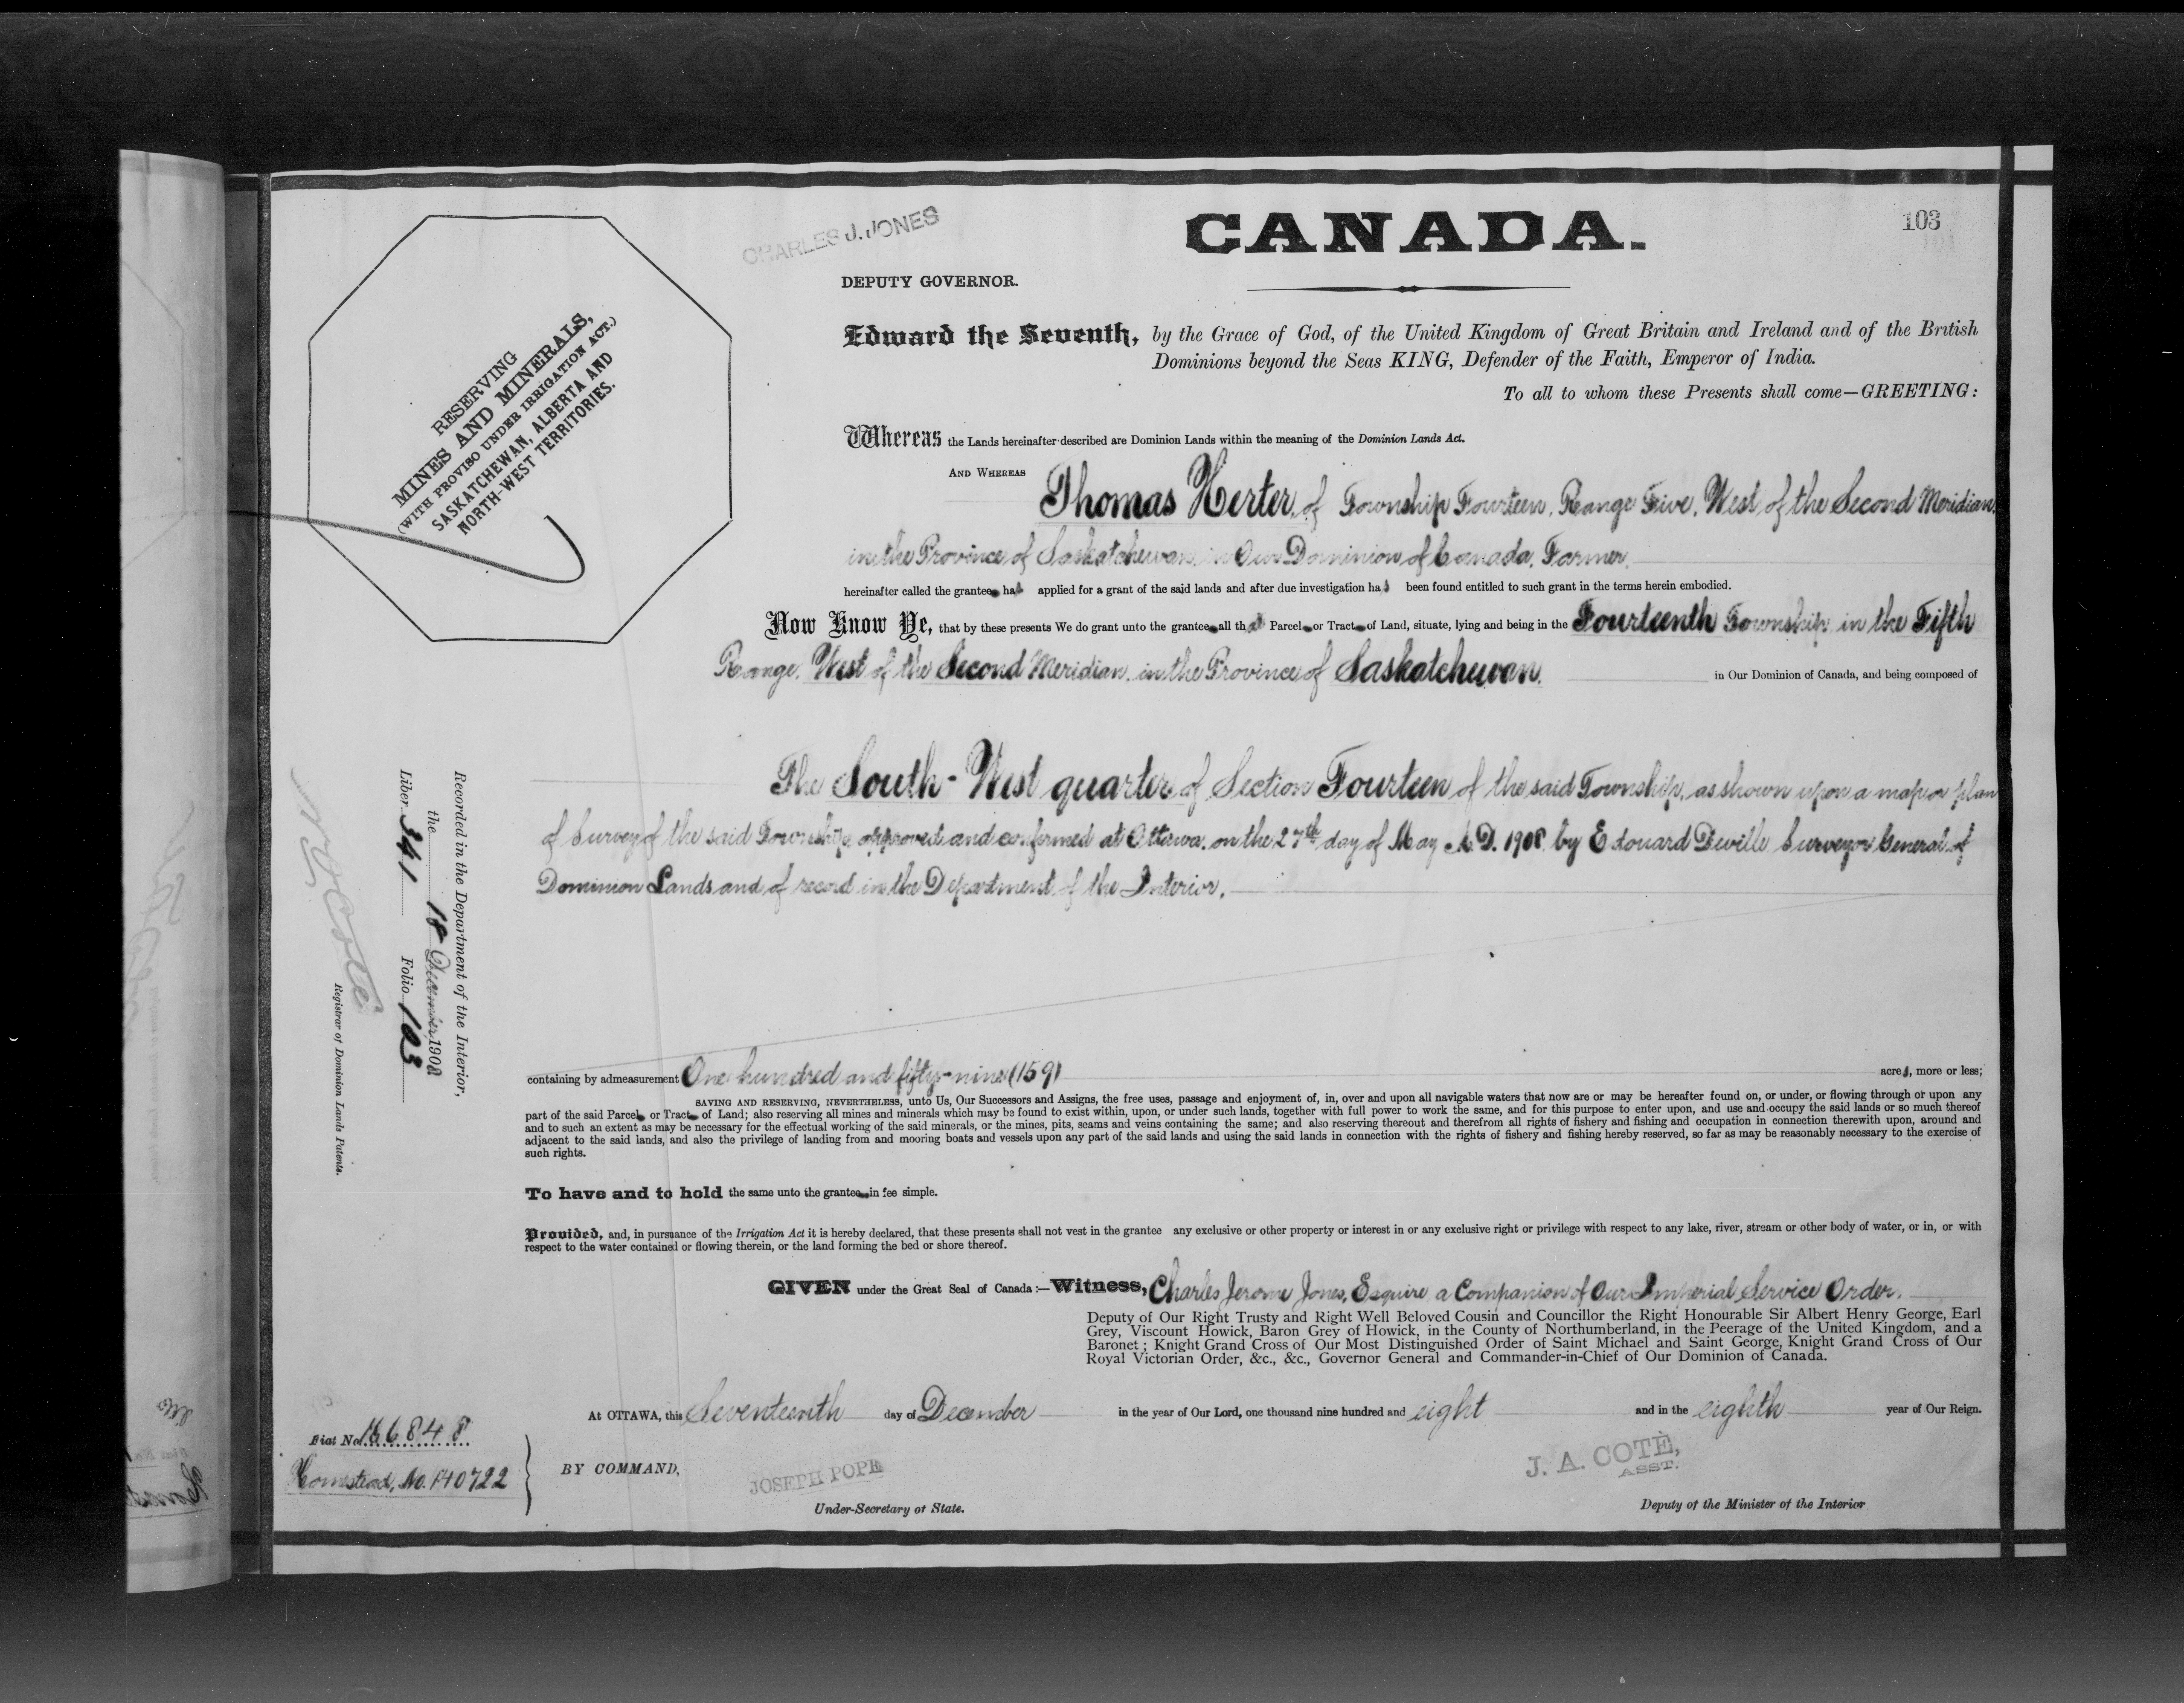 CHARLES J. JONES
CANADA.
103
DEPUTY GOVERNOR.
RESERVING
MINES AND MINERALS,
(WITH PROVISO UNDER IRRIGATION ACT.)
SASKATCHEWAN, ALBERTA AND
NORTH-WEST TERRITORIES.
Edward the Seventh, by the Grace of God, of the United Kingdom of Great Britain and Ireland and of the British
Dominions beyond the Seas KING, Defender of the Faith, Emperor of India.
To all to whom these Presents shall come—GREETING:
Whereas the Lands hereinafter described are Dominion Lands within the meaning of the Dominion Lands Act.
AND WHEREAS Thomas Herter, of Township Fourteen, Range Five, West of the Second Meridian,
in the Province of Saskatchewan, in Our Dominion of Canada, Farmer,
hereinafter called the grantee has applied for a grant of the said lands and after due investigation has been found entitled to such grant in the terms herein embodied.
Now Know Ye, that by these presents We do grant unto the grantee all that Parcel or Tract of Land, situate, lying and being in the Fourteenth Township, in the Fifth
Range, West of the Second Meridian, in the Province of Saskatchewan, in Our Dominion of Canada, and being composed of
The South-West quarter of Section Fourteen of the said Township, as shown upon a map or plan
of Survey of the said Township approved and confirmed at Ottawa, on the 27th day of May A.D. 1908, by Edouard Deville Surveyor General of
Dominion Lands and of record in the Department of the Interior.
Recorded in the Department of the Interior,
the 18 December, 1908
Liber 341 Folio 103
N O Coté
Registrar of Dominion Lands Patents.
containing by admeasurement One hundred and fifty-nine (159) acres, more or less;
SAVING AND RESERVING, NEVERTHELESS, unto Us, Our Successors and Assigns, the free uses, passage and enjoyment of, in, over and upon all navigable waters that now are or may be hereafter found on, or under, or flowing through or upon any
part of the said Parcel or Tract of Land; also reserving all mines and minerals which may be found to exist within, upon, or under such lands, together with full power to work the same, and for this purpose to enter upon, and use and occupy the said lands or so much thereof
and to such an extent as may be necessary for the effectual working of the said minerals, or the mines, pits, seams and veins containing the same; and also reserving thereout and therefrom all rights of fishery and fishing and occupation in connection therewith upon, around and
adjacent to the said lands, and also the privilege of landing from and mooring boats and vessels upon any part of the said lands and using the said lands in connection with the rights of fishery and fishing hereby reserved, so far as may be reasonably necessary to the exercise of
such rights.
To have and to hold the same unto the grantee in fee simple.
Provided, and, in pursuance of the Irrigation Act it is hereby declared, that these presents shall not vest in the grantee any exclusive or other property or interest in or any exclusive right or privilege with respect to any lake, river, stream or other body of water, or in, or with
respect to the water contained or flowing therein, or the land forming the bed or shore thereof.
GIVEN under the Great Seal of Canada:—Witness, Charles Jerome Jones, Esquire, a Companion of Our Imperial Service Order,
Deputy of Our Right Trusty and Right Well Beloved Cousin and Councillor the Right Honourable Sir Albert Henry George, Earl
Grey, Viscount Howick, Baron Grey of Howick, in the County of Northumberland, in the Peerage of the United Kingdom, and a
Baronet; Knight Grand Cross of Our Most Distinguished Order of Saint Michael and Saint George, Knight Grand Cross of Our
Royal Victorian Order, &c., &c., Governor General and Commander-in-Chief of Our Dominion of Canada.
At OTTAWA, this Seventeenth day of December in the year of Our Lord, one thousand nine hundred and eight and in the eighth year of Our Reign.
Fiat No. 166848
Homestead, No. 140722
BY COMMAND,
JOSEPH POPE
Under-Secretary of State.
J. A. COTÈ,
ASST.
Deputy of the Minister of the Interior